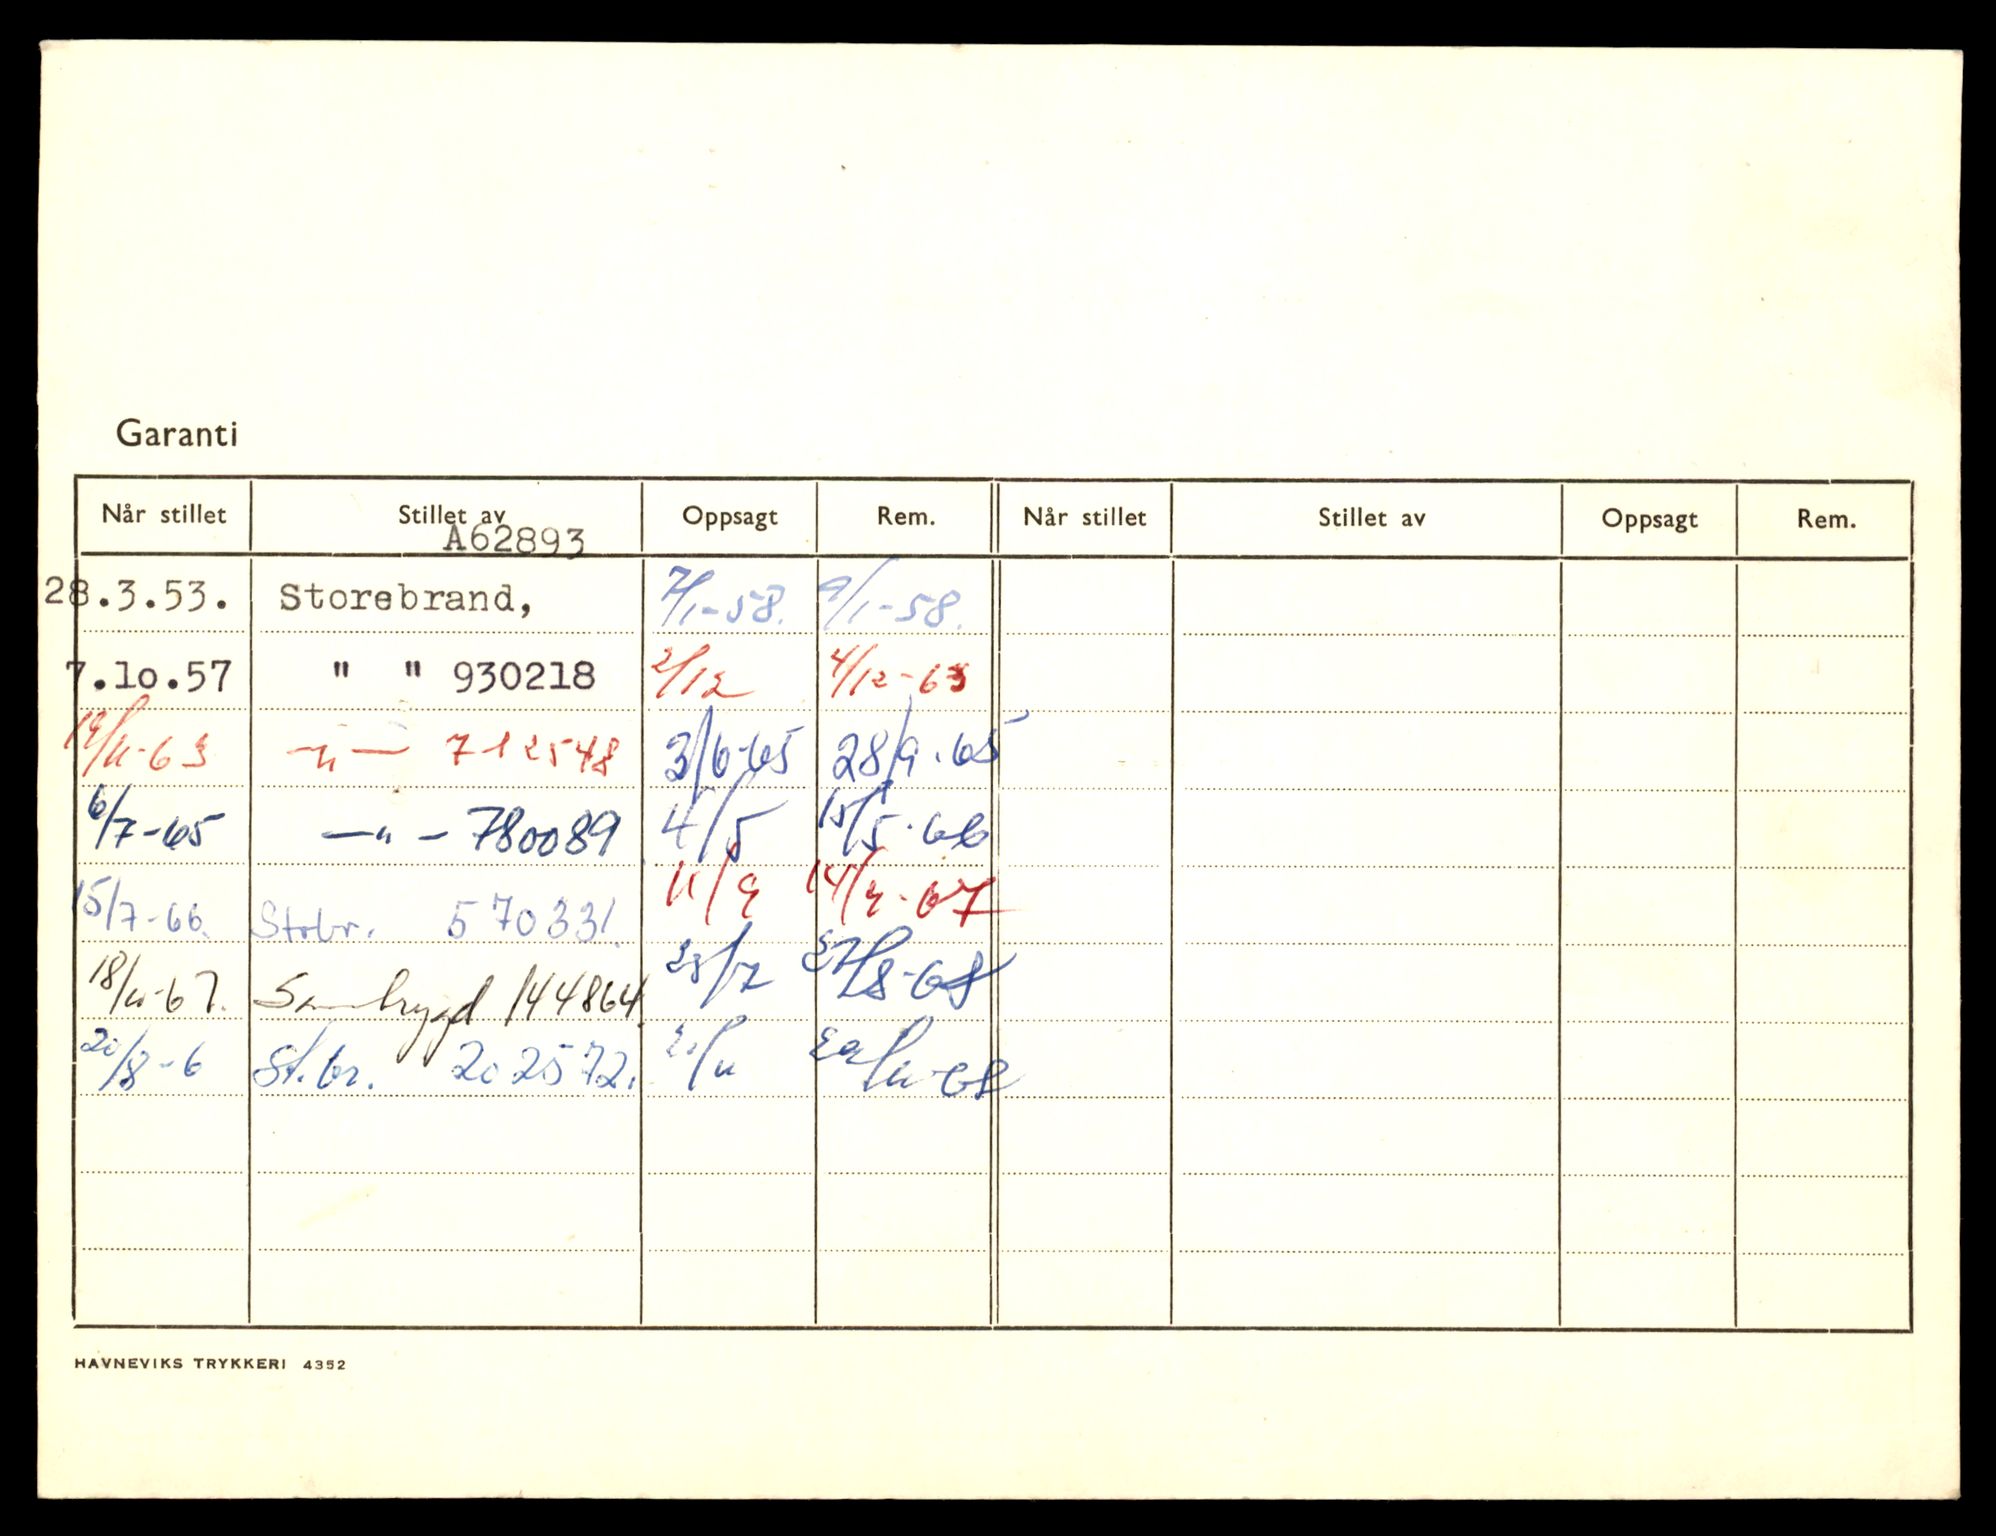 Garanti
Når stillet Stillet av Oppsagt Rem. Når stillet Stillet av Oppsagt Rem.
A62893
28.3.53. Storebrand, 7/1-58. 9/1-58.
7.10.57 " " 930218 2/12 4/12-63
19/11-63 -"- 712548 3/6-65 28/9.65
6/7-65 -"- 780089 4/5 15/5.66
15/7-66. Stobr. 570331. 11/9 14/9.67
18/11-67. Samtrygd 144864. 23/7 27/8-68
20/8-6 St.br. 202572. 21/11 29/11-68
HAVNEVIKS TRYKKERI 4352